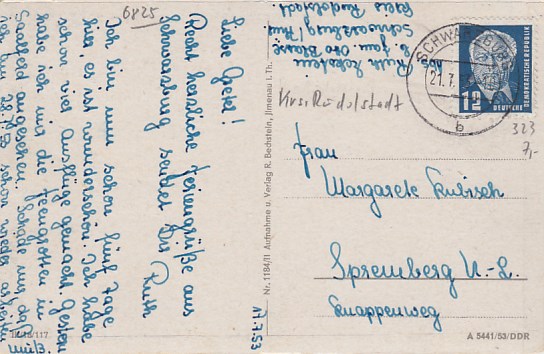 6825
Liebe Gretel!
Recht herzliche Feriengrüße aus
Schwarzburg sendet Dir
Ruth
Ich bin nun schon fünf Tage
hier, es ist wunderschön. Ich habe
schon viel Ausflüge gemacht. Gestern
habe ich mir die Feengrotten in
Saalfeld angesehen. Schade nur, daß
ich am 22.7.53 schon wieder
muß.
III/18/117
17.7.53
Nr. 1184/II Aufnahme u. Verlag R. Bechstein, Jlmenau i. Th.
Ruth Eckstein
b. Frau Blosse
Schwarzburg/Thür
Kreis Rudolstadt.
SCHWARZBURG
21.7.
b
12
DEUTSCHE
DEMOKRATISCHE REPUBLIK
Krs. Rudolstadt
323
7,-
Frau
Margarete Kubisch
Spremberg N.-L.
Knappenweg
A 5441/53/DDR